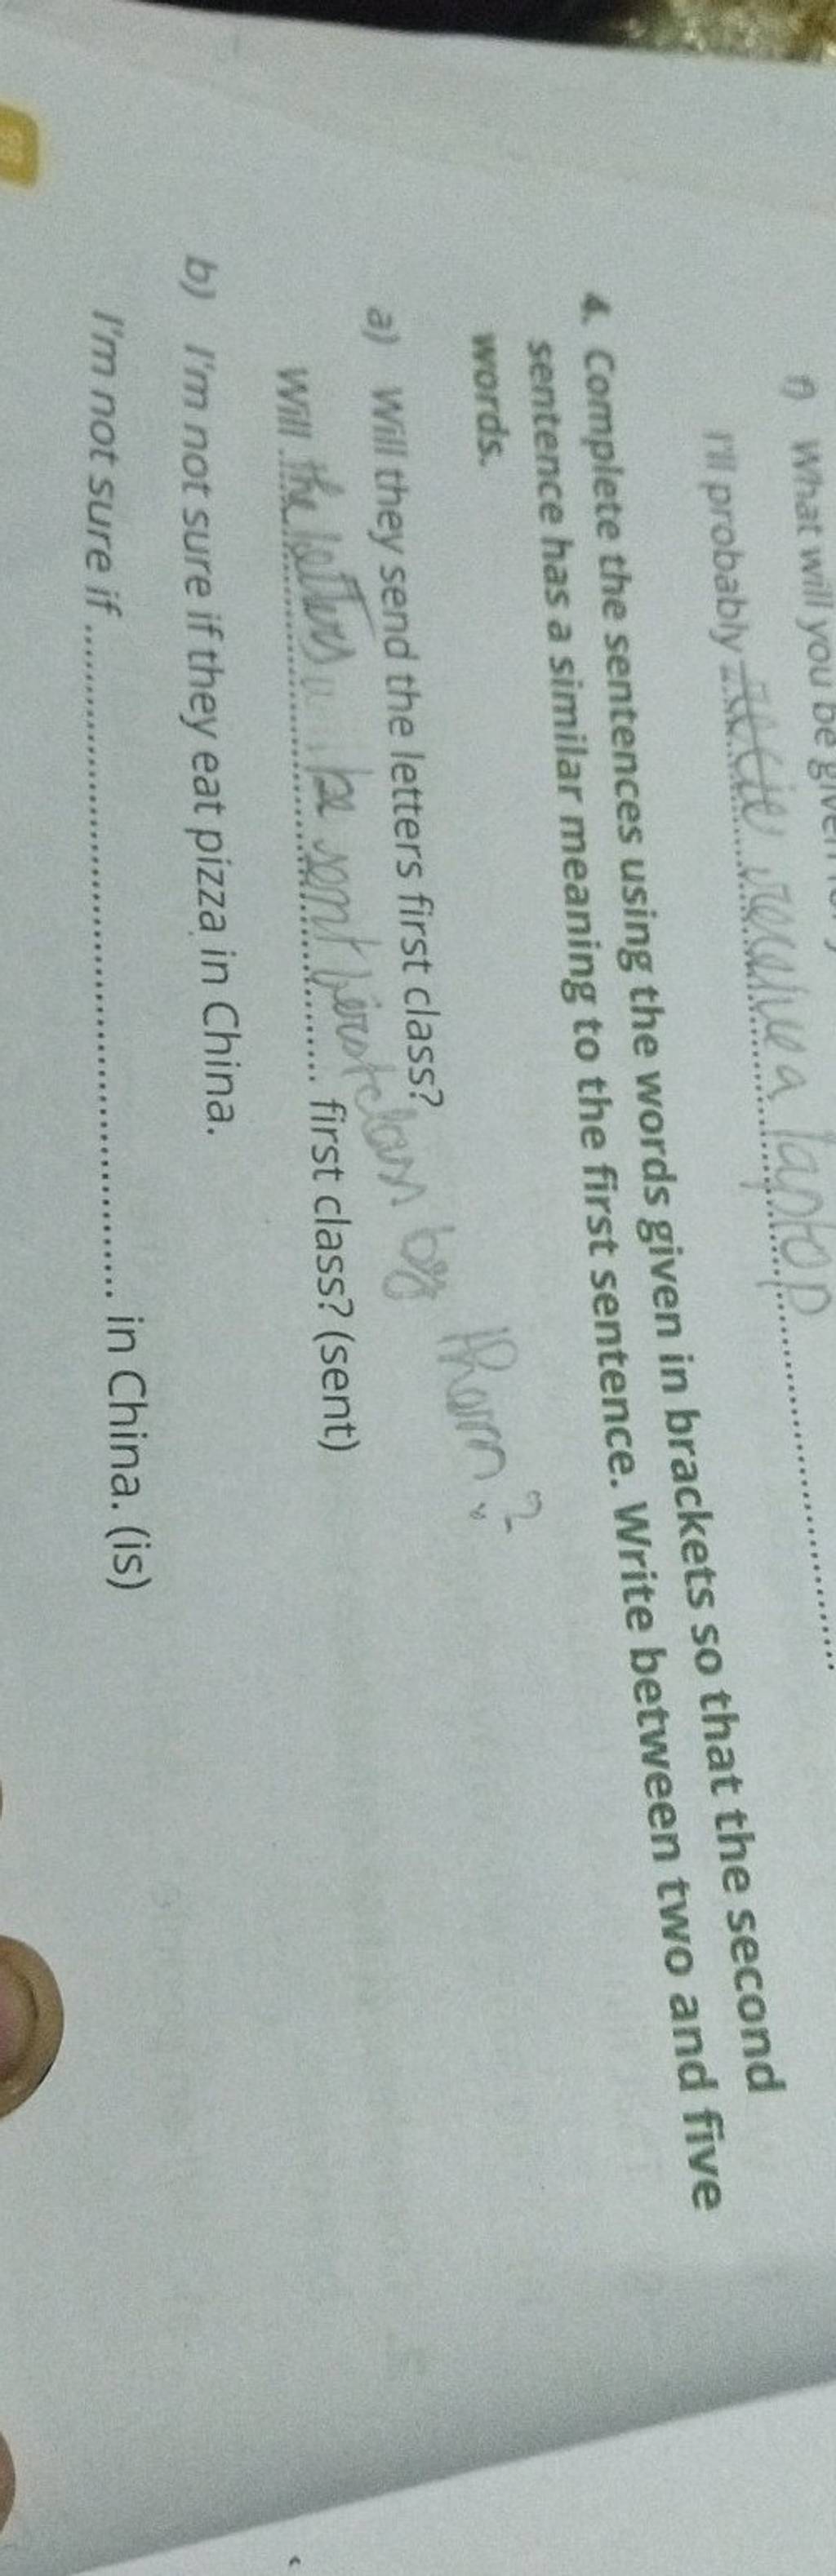 f) What will you be given
I'll probably receive a laptop
4. Complete the sentences using the words given in brackets so that the second
sentence has a similar meaning to the first sentence. Write between two and five
words.
a) Will they send the letters first class?
Will the letters be sent first class by them? first class? (sent)
b) I'm not sure if they eat pizza in China.
I'm not sure if ........................ in China. (is)